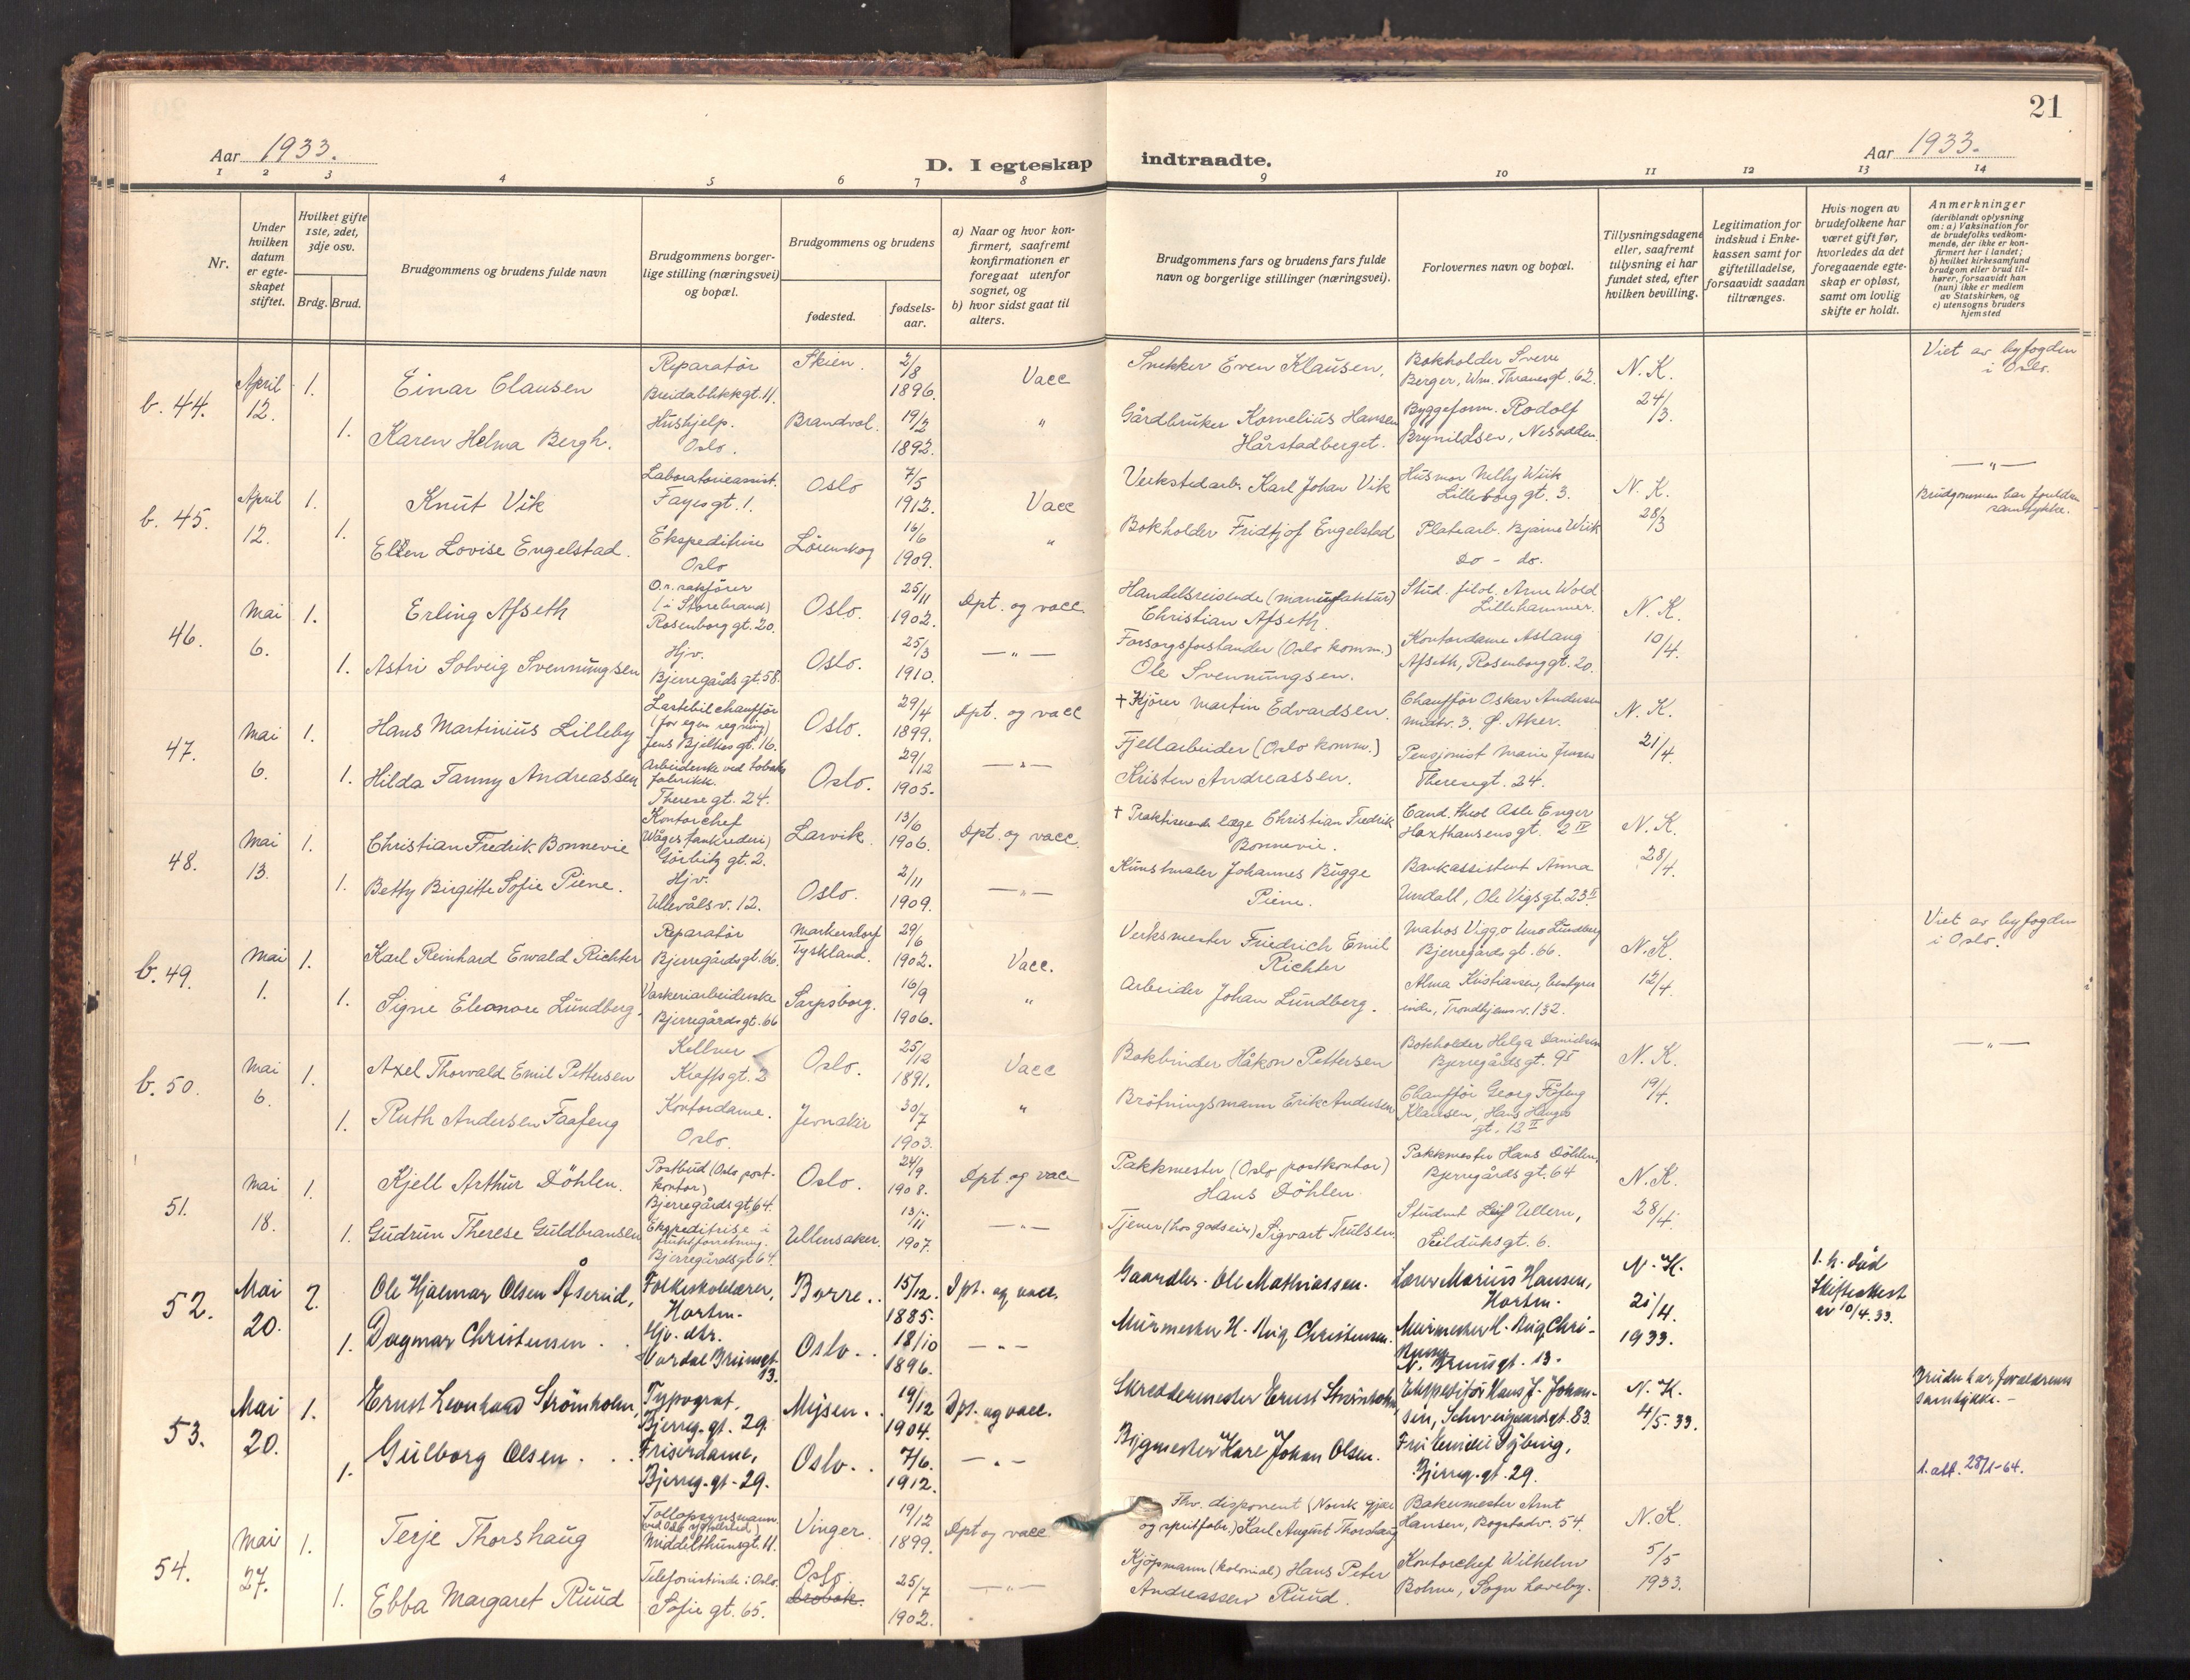 21
Aar 1933.
D. I egteskap indtraadte.
Aar 1933.
1 2 3 4 5 6 7 8 9 10 11 12 13 14
Nr.
Under hvilken datum er egteskapet stiftet.
Hvilket gifte 1ste, 2det, 3dje osv.
Brdg. Brud.
Brudgommens og brudens fulde navn
Brudgommens borgerlige stilling (næringsvei) og bopæl.
Brudgommens og brudens
fødested.
fødselsaar.
a) Naar og hvor konfirmert, saafremt konfirmationen er foregaat utenfor sognet, og
b) hvor sidst gaat til alters.
Brudgommens fars og brudens fars fulde navn og borgerlige stillinger (næringsvei).
Forlovernes navn og bopæl.
Tillysningsdagene eller, saafremt tillysning ei har fundet sted, efter hvilken bevilling.
Legitimation for indskud i Enkekassen samt for giftetilladelse, forsaavidt saadan tiltrænges.
Hvis nogen av brudefolkene har været gift før, hvorledes da det foregaaende egteskap er opløst, samt om lovlig skifte er holdt.
Anmerkninger
(deriblandt oplysning om: a) Vaksination for de brudefolks vedkommende, der ikke er konfirmert her i landet; b) hvilket kirkesamfund brudgom eller brud tilhører, forsaavidt han (hun) ikke er medlem av Statskirken, og c) utensogns bruders hjemsted
b. 44. April 12. 1. Einar Clausen Reparatør Breidablikkgt. 11. Skien. 2/8 1896. Vacc Snekker Even Klausen, Bokholder Sverre Berger, Wm. Thranesgt. 62. N. K. 24/3. Viet av byfogden i Oslo.
1. Karen Helma Bergh. Hushjelp. Oslo. Brandval. 19/2 1892. " Gårdbruker Kornelius Hansen Hårstadberget. Byggeform. Rodolf Brynildsen, Nesodden.
b. 45. April 12. 1. Knut Vik Laboratorieassist. Fayesgt. 1. Oslo 7/5 1912. Vacc Verkstedarb. Karl Johan Vik Husmor Nelly Wiik Lilleborg gt. 3. N. K. 28/3 —"— Brudgommen har foreldres samtykke.
1. Ellen Lovise Engelstad. Ekspeditrise Oslo Lörenskog 16/6 1909. " Bokholder Fridtjof Engelstad Platearb. Bjarne Wiik Do - do.
46. Mai 6. 1. Erling Afseth O.r.sakfører (i Storebrand) Rosenborg gt. 20. Oslo. 25/11 1902. Dpt. og vacc Handelsreisende (manufaktur) Christian Afseth. Stud. filol. Arne Wold Lillehammer. N. K. 10/4.
1. Astri Solveig Svennungsen Hjv. Bjerregårds gt. 58. Oslo. 25/3 1910. —"— Forsorgsforstander (Oslo komm.) Ole Svennungsen. Kontordame Aslaug Afseth, Rosenborggt. 20.
47. Mai 6. 1. Hans Martinius Lilleby Lastebilchauffør (for egen regning) Jens Bjelkes gt. 16. Oslo. 29/4 1899. Dpt. og vacc † Kjører Martin Edvardsen. Chauffør Oskar Andersen 3. Ø. Aker. N. K. 21/4.
1. Hilda Fanny Andreassen Arbeiderske ved tobaksfabrikk. Therese gt. 24. Oslo. 29/12 1905. —"— Fjellarbeider (Oslo komm.) Kristen Andreassen. Pensjonist Marie Jensen Theresegt. 24.
48. Mai 13. 1. Christian Fredrik Bonnevie Kontorchef (Wåges tankrederi) Görbitz gt. 2. Larvik. 13/6 1906. Dpt. og vacc. † Praktiserende læge Christian Fredrik Bonnevie. Cand. theol Asle Enger Haxthausens gt. 2 IV N. K. 28/4.
1. Betty Birgitte Sofie Piene. Hjv. Ullevålsv. 12. Oslo. 2/11 1909. —"— Kunstmaler Johannes Bugge Piene. Bankassistent Anna Undall, Ole Vigsgt. 23 II
b. 49. Mai 1. 1. Karl Reinhard Ewald Richter Reparatør Bjerregårdsgt. 66. Markersdorf Tyskland. 29/6 1902. Vacc. Verksmester Friedrich Emil Richter Matros Viggo Uno Lundberg Bjerregårds gt. 66. N. K. 12/4. Viet av byfogden i Oslo.
1. Signe Eleonore Lundberg. Vaskeriarbeiderske Bjerregårdsgt. 66 Sarpsborg. 16/9 1906. " Arbeider Johan Lundberg. Alma Kristiansen, bestyrerinde, Trondhjemsv. 132.
b. 50. Mai 6. 1. Axel Thorvald Emil Pettersen Kellner Kraftsgt. 2 Oslo. 25/12 1891. Vacc Bokbinder Håkon Pettersen Bokholder Helga Danielsen Bjerregårds gt. 9I N. K. 19/4. —"—
1. Ruth Andersen Faafeng Kontordame. Oslo. Jevnaker 30/7 1903. " Brötningsmann Erik Andersen Chauffør Georg Fåfeng Klausen, Hans Hauges gt. 12 II
51. Mai 18. 1. Kjell Arthur Döhlen. Postbud (Oslo postkontor) Bjerregårds gt. 64. Oslo. 24/9 1908. Dpt. og vacc Pakkmester (Oslo postkontor) Hans Döhlen. Pakkmester Hans Döhlen, Bjerregårds gt. 64 N. K. 28/4.
1. Gudrun Therese Guldbransen Ekspeditrise i fruktforretning. Bjerregårdsgt 64. Ullensaker. 13/11 1907. —"— Tjener (hos godseier) Sigvart Trulsen. Student Leif Ullern, Seilduksgt. 6.
52. Mai 20. 2. Ole Hjalmar Olsen Åserud, Folkeskolelærer, Horten. Borre. 15/12. 1885. Dpt. og vacc. Gaardbr. Ole Mathiassen. Lærer Marius Hansen, Horten. N. K. 21/4. 1933. 1. h. död Skifteattest av 10/4. 33.
1. Dagmar Christensen. Hjv. dtr. Nordal Brunsgt. 13. Oslo. 18/10 1896. —"— Murmester H. Aug. Christensen. Murmester H. Aug. Christensen N. Brunsgt. 13.
53. Mai 20. 1. Ernst Leonhard Strömholm, Typograf, Bjerreg. gt. 29. Mysen. 19/12 1904. Dpt. og vacc. Skreddermester Ernst Strömholm Ekspeditör Hans J. Johansen, Schweigaardsgt. 83. N. K. 4/5. 33. Bruden har forældrenes samtykke.-
1. Gulborg Olsen. Friserdame, Bjerreg. gt. 29. Oslo. 7/6. 1912. —"— Bygmester Karl Johan Olsen. Fru Nybing, Bjerreg. gt. 29. 1. att. 28/1-64.
54. Mai 27. 1. Terje Thorshaug Tollopsynsmann (ved Oslo) Middelthunsgt. 11. Vinger. 19/12 1899. Dpt og vacc Fhv. disponent (Norsk gjær og spritfabr.) Karl August Thorshaug Bakermester Arnt Hansen, Bogstadv. 54. N. K. 5/5 1933.
1. Ebba Margaret Ruud Telefonistinde i Oslo. Sofie gt. 65. Oslo. Drøbak. 25/7 1902. —"— Kjöpmann (kolonial) Hans Peter Andreassen Ruud. Kontorchef Wilhelm Bohne, Sogn haveby.